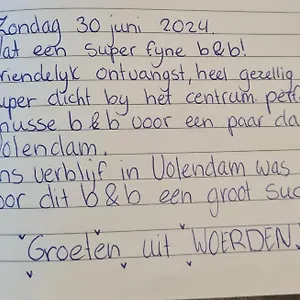 Zondag 30 juni 2024.
at een super fyne b&b!
riendelyk ontvangst, heel gezellig
uper dicht by het centrum. perf
nusse b&b voor een paar da
olendam.
ns verblijf in Volendam was
oor dit b&b een groot suc
Groeten uit WOERDEN.